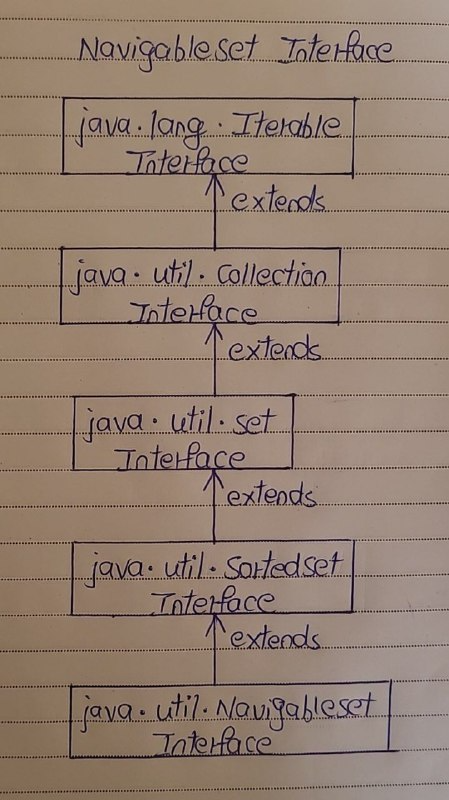 Navigableset Interface
java.lang.Iterable
Interface
extends
java.util.Collection
Interface
extends
java.util.set
Interface
extends
java.util.Sortedset
Interface
extends
java.util.Navigableset
Interface